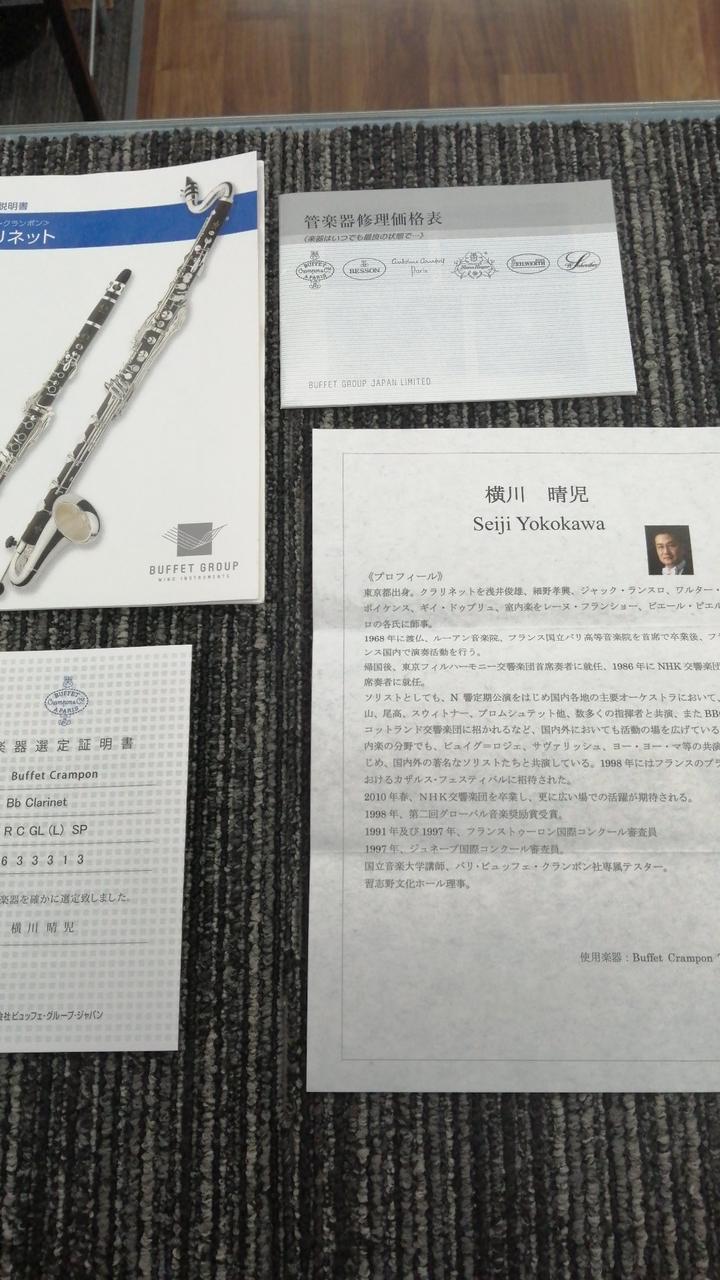 説明書
クランポン>
リネット
BUFFET GROUP
WIND INSTRUMENTS
管楽器修理価格表
《楽器はいつでも最良の状態で…》
BUFFET
Crampon & Cie
A PARIS
BESSON
Antoine Courtois
Paris
KEILWERTH
W. Schreiber
BUFFET GROUP JAPAN LIMITED
横川 晴児
Seiji Yokokawa
《プロフィール》
東京都出身。クラリネットを浅井俊雄、細野孝興、ジャック・ランスロ、ワルター・
ボイケンス、ギイ・ドゥプリュ、室内楽をレーヌ・フランショー、ピエール・ピエル
ロの各氏に師事。
1968年に渡仏、ルーアン音楽院、フランス国立パリ高等音楽院を首席で卒業後、フラ
ンス国内で演奏活動を行う。
帰国後、東京フィルハーモニー交響楽団首席奏者に就任、1986年にNHK交響楽団
席奏者に就任。
ソリストとしても、N響定期公演をはじめ国内各地の主要オーケストラにおいて、
山、尾高、スウィトナー、ブロムシュテット他、数多くの指揮者と共演、またBB
コットランド交響楽団に招かれるなど、国内外においても活動の場を広げている
内楽の分野でも、ピュイグ＝ロジェ、サヴァリッシュ、ヨー・ヨー・マ等の共演
じめ、国内外の著名なソリストたちと共演している。1998年にはフランスのプラ
おけるカザルス・フェスティバルに招待された。
2010年春、NHK交響楽団を卒業し、更に広い場での活躍が期待される。
1998年、第二回グローバル音楽奨励賞受賞。
1991年及び1997年、フランストゥーロン国際コンクール審査員
1997年、ジュネーブ国際コンクール審査員。
国立音楽大学講師、パリ・ビュッフェ・クランポン社専属テスター。
習志野文化ホール理事。
使用楽器：Buffet Crampon
BUFFET
Crampon & Cie
A PARIS
楽器選定証明書
Buffet Crampon
Bb Clarinet
R C GL (L) SP
6 3 3 3 1 3
楽器を確かに選定致しました。
横川晴児
会社ビュッフェ・グループ・ジャパン